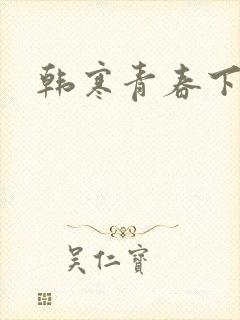 韩寒青春下
吴仁寶